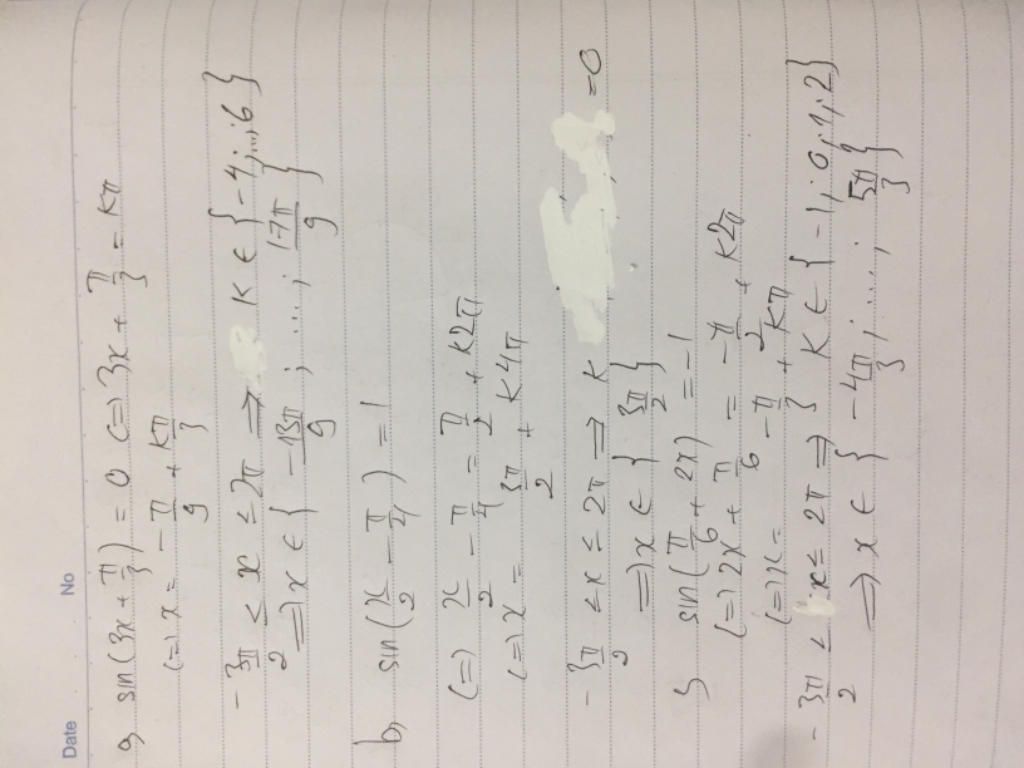 Date No
a, sin(3x + π/3) = 0 (=) 3x + π/3 = kπ
(=) x = -π/9 + kπ/3
-3π/2 < x ≤ 2π => k ∈ {-4; ...; 6}
=) x ∈ { -13π/9 ; ....; 17π/9 }
b, sin(x/2 - π/4) = 1
(=) x/2 - π/4 = π/2 + k2π
(=) x = 3π/2 + k4π
-3π/2 < x ≤ 2π => k = 0
=) x ∈ { 3π/2 }
sin(π/6 + 2x) = -1
(=) 2x + π/6 = -π/2 + k2π
(=) x = -π/3 + kπ
-3π/2 < x ≤ 2π => k ∈ {-1; 0; 1; 2}
=> x ∈ { -4π/3 ; ....; 5π/3 }